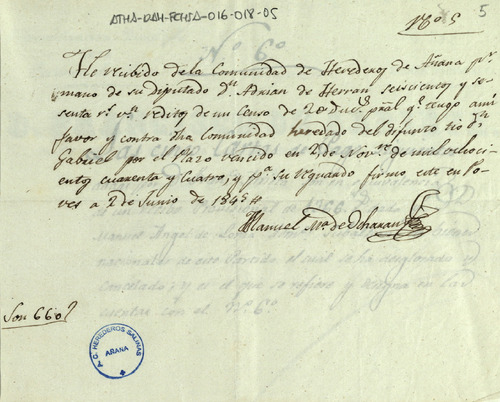 ATHA-DAH-FCHSA-016-018-05
5
Nº 5
He recibido de la Comunidad de Herederos de Añana pr
mano de su Diputado Dn. Adrian de Herran seiscientos y se-
senta rs. vn. reditos de un Censo de 20 Duc.s pral qe. tengo ami
favor y contra dha Comunidad heredado del difunto tio Dn.
Gabriel por el Plazo vencido en 2 de Nov.re de mil ochocien
tos cuarenta y Cuatro, y pa. su resguardo firmo este en Po-
ves a 2 de Junio de 1845
Manuel Ma. de
Son 660 r
Nº 6º
T. C. HEREDEROS SALINAS
AÑANA